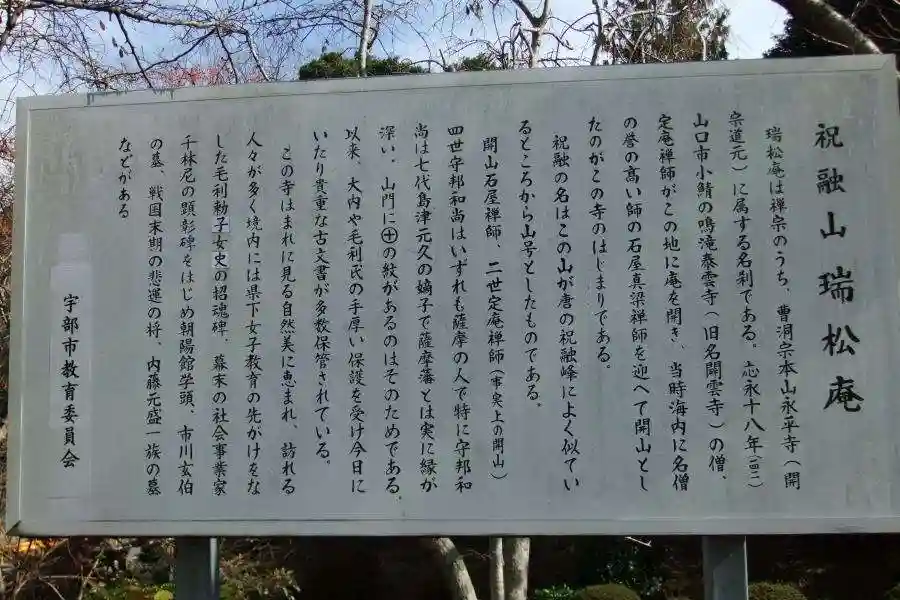 祝融山 瑞松庵
瑞松庵は禅宗のうち、曹洞宗本山永平寺(開
宗道元)に属する名刹である。応永十八年(一四一一)
山口市小鯖の鳴滝泰雲寺(旧名開雲寺)の僧、
定庵禅師がこの地に庵を開き、当時海内に名僧
の誉の高い師の石屋真梁禅師を迎へて開山とし
たのがこの寺のはじまりである。
祝融の名はこの山が唐の祝融峰によく似てい
るところから山号としたものである。
開山石屋禅師、二世定庵禅師(事実上の開山)
四世守邦和尚はいずれも薩摩の人で特に守邦和
尚は七代島津元久の嫡子で薩摩藩とは実に縁が
深い。山門に㊉の紋があるのはそのためである。
以来、大内や毛利氏の手厚い保護を受け今日に
いたり貴重な古文書が多数保管されている。
この寺はまれに見る自然美に恵まれ、訪れる
人々が多く境内には県下女子教育の先がけをな
した毛利勅子女史の招魂碑、幕末の社会事業家
千林尼の顕彰碑をはじめ朝陽館学頭、市川玄伯
の墓、戦国末期の悲運の将、内藤元盛一族の墓
などがある
宇部市教育委員会